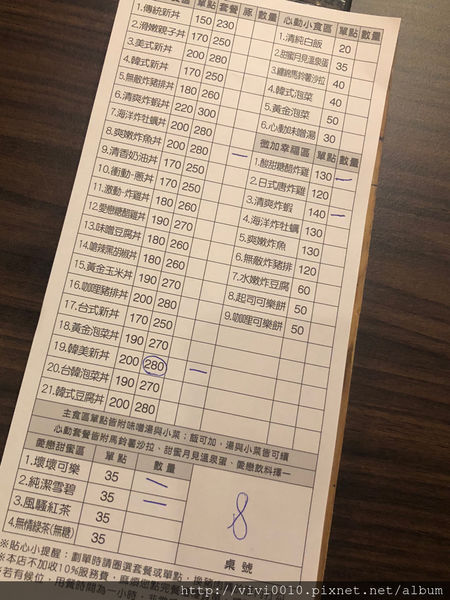 食區 單點 套餐 豚 數量
1.傳統新丼 150 230
2.滑嫩親子丼 170 250
3.美式新丼 200 280
4.韓式新丼 170 250
5.無敵炸豬排丼 180 260
6.清爽炸蝦丼 220 300
7.海洋炸牡蠣丼 200 280
8.爽嫩炸魚丼 200 280
9.清香奶油丼 170 250
10.衝動-蔥丼 170 250
11.激動-炸雞丼 180 260
12.愛戀糖醋雞丼 190 270
13.味噌豆腐丼 180 260
14.嗆辣黑胡椒丼 180 260
15.黃金玉米丼 190 270
16.咖哩豬排丼 200 280
17.台式新丼 170 250
18.黃金泡菜丼 190 270
19.韓美新丼 200 280
20.台韓泡菜丼 190 270
21.韓式豆腐丼 200 280
心動小食區 單點 數量
1.清純白飯 20
2.甜蜜月見溫泉蛋 35
3.纏綿馬鈴薯沙拉 40
4.韓式泡菜 40
5.黃金泡菜 50
6.心動加味噌湯 30
微加幸福區 單點 數量
1.酸甜糖醋炸雞 130
2.日式唐炸雞 120
3.清爽炸蝦 140
4.海洋炸牡蠣 130
5.爽嫩炸魚 130
6.無敵炸豬排 120
7.水嫩炸豆腐 60
8.起司可樂餅 50
9.咖哩可樂餅 50
主食區單點皆附味噌湯與小菜；飯可加，湯與小菜皆可續
心動套餐皆附馬鈴薯沙拉、甜蜜月見溫泉蛋、愛戀飲料擇一
愛戀甜蜜區 單點 數量
1.壞壞可樂 35
2.純潔雪碧 35
3.風騷紅茶 35
4.無情綠茶(無糖) 35
8
桌號
※貼心小提醒：劃單時請圈選套餐或單點
※本店不加收10%服務費
http://vivi0010.pixnet.net/album